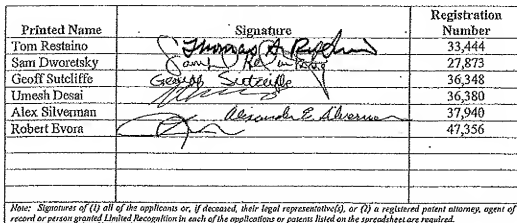 Printed Name Signature Registration Number
Tom Restaino Thomas A. Restaino 33,444
Sam Dworetsky Sam 27,873
Geoff Sutcliffe George Sutcliffe 36,348
Umesh Desai 36,380
Alex Silverman Alexander E. Silverman 37,940
Robert Evora 47,356
Note: Signatures of (1) all of the applicants or, if deceased, their legal representative(s), or (2) a registered patent attorney, agent of
record or person granted Limited Recognition in each of the applications or patents listed on the spreadsheet are required.